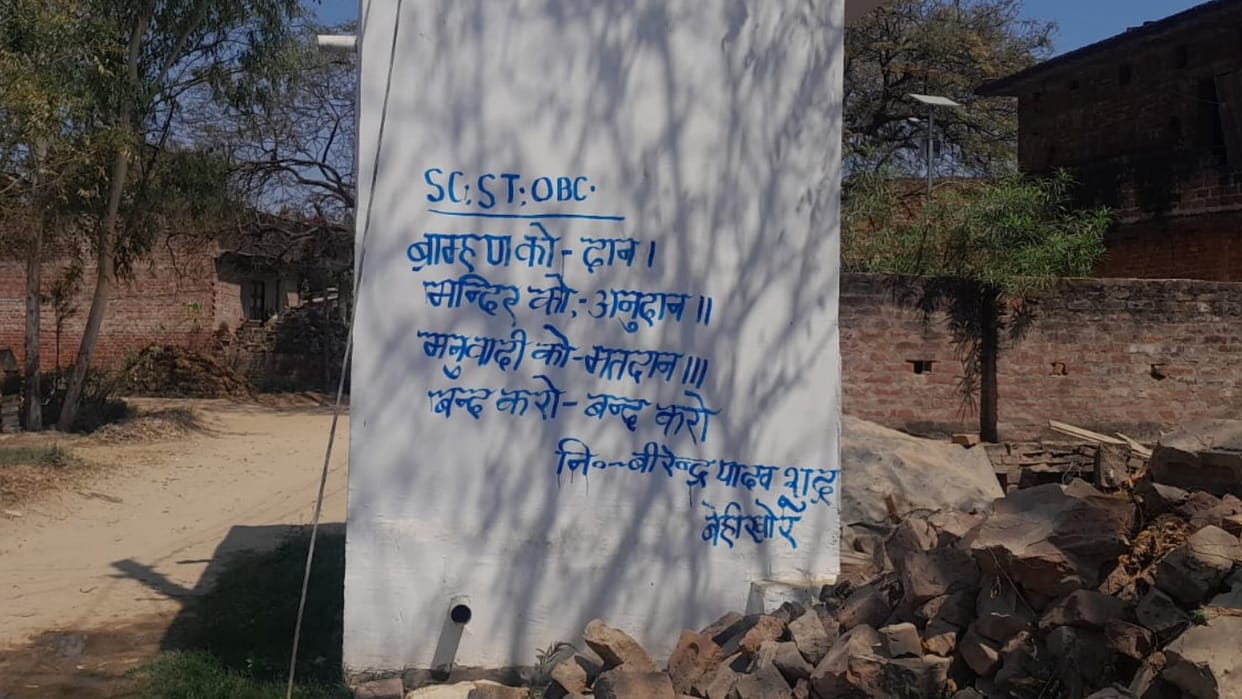 SC; ST; OBC.
ब्राम्हण को - दान।
मन्दिर को;- अनुदान॥
मनुवादी को - मतदान।॥
बन्द करो - बन्द करो
नि०-- बीरेन्द्र यादव शूद्र